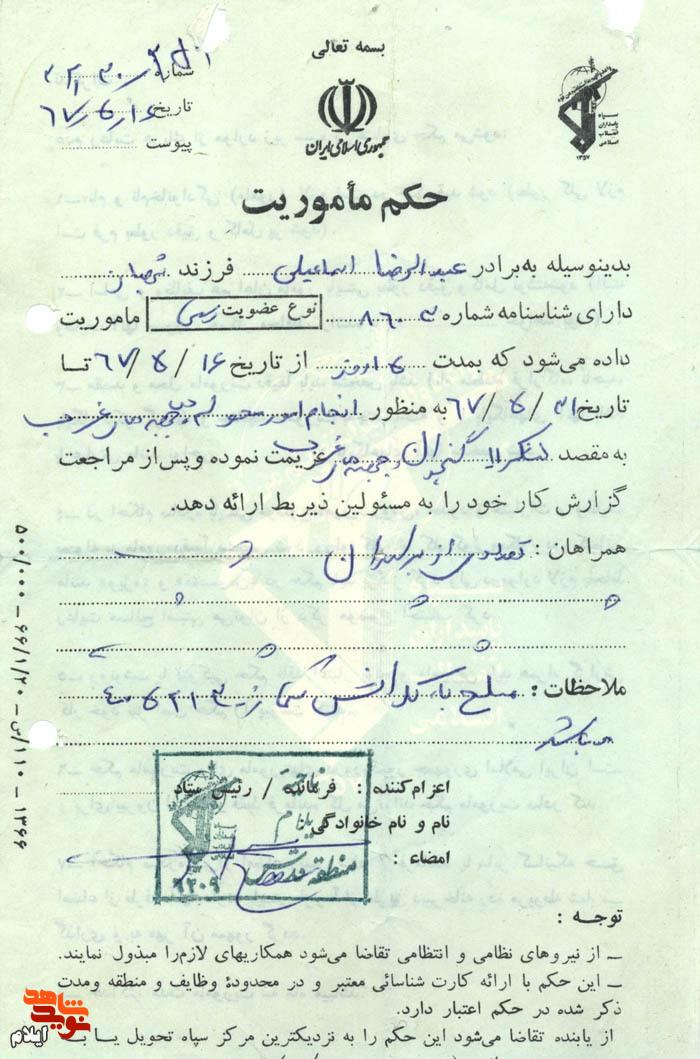 بسمه تعالی
جمهوری اسلامی ایران
سپاه پاسداران انقلاب اسلامی
۱۳۵۷
شماره
تاریخ ۶۷/۵/۱۶
پیوست
حکم مأموریت
بدینوسیله به برادر عبدالرضا اسماعیلی فرزند شهباز
دارای شناسنامه شماره ۸۶۰۳ نوع عضویت رسمی ماموریت
داده می‌شود که بمدت ۱۵ روز از تاریخ ۶۷/۵/۱۶ تا
تاریخ ۶۷/۵/۳۱ به منظور انجام امور محوله جبهه های غرب
به مقصد لشکر ۱۱ جبهه های غرب عزیمت نموده و پس از مراجعت
گزارش کار خود را به مسئولین ذیربط ارائه دهد.
همراهان : تعدادی از برادران
ملاحظات : مسلح به کلانش شماره
میباشد
اعزام‌کننده : فرمانده / رئیس ستاد
نام و نام خانوادگی
امضاء :
منطقه
توجه :
ـ از نیروهای نظامی و انتظامی تقاضا می‌شود همکاریهای لازم را مبذول نمایند.
ـ این حکم با ارائه کارت شناسائی معتبر و در محدودهٔ وظایف و منطقه ومدت
ذکر شده در حکم اعتبار دارد.
ـ از یابنده تقاضا می‌شود این حکم را به نزدیکترین مرکز سپاه تحویل یا به
۵۰۰/۰۰۰ – ۶۶/۱/۲۰ – س/۱۱۰ – ۱۳۶۶
نوید شاهد
ایلام